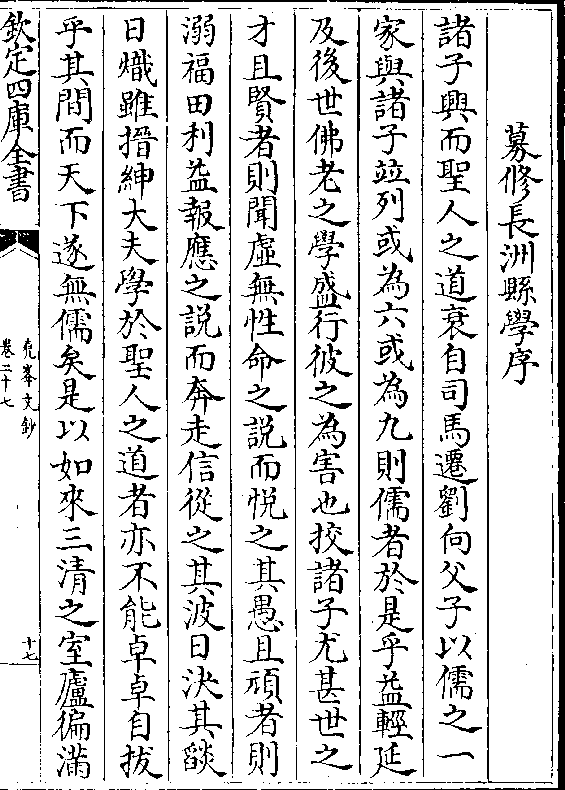 募修長洲縣學序
諸子興而聖人之道衰自司馬遷劉向父子以儒之一
家與諸子竝列或為六或為九則儒者於是乎益輕延
及後世佛老之學盛行彼之為害也挍諸子尤甚世之
才且賢者則聞虛無性命之說而悅之其愚且頑者則
溺福田利益報應之說而奔走信從之其波日決其燄
日熾雖搢紳大夫學於聖人之道者亦不能卓卓自拔
乎其間而天下遂無儒矣是以如來三清之室廬徧滿
欽定四庫全書
堯峯文鈔
卷二十七
十七